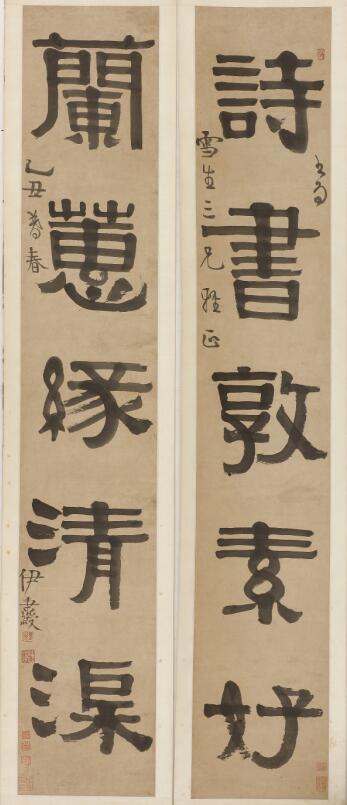 詩書敦素好
雪生三兄雅正
蘭蕙緣清渠
乙丑暮春
伊秉綬